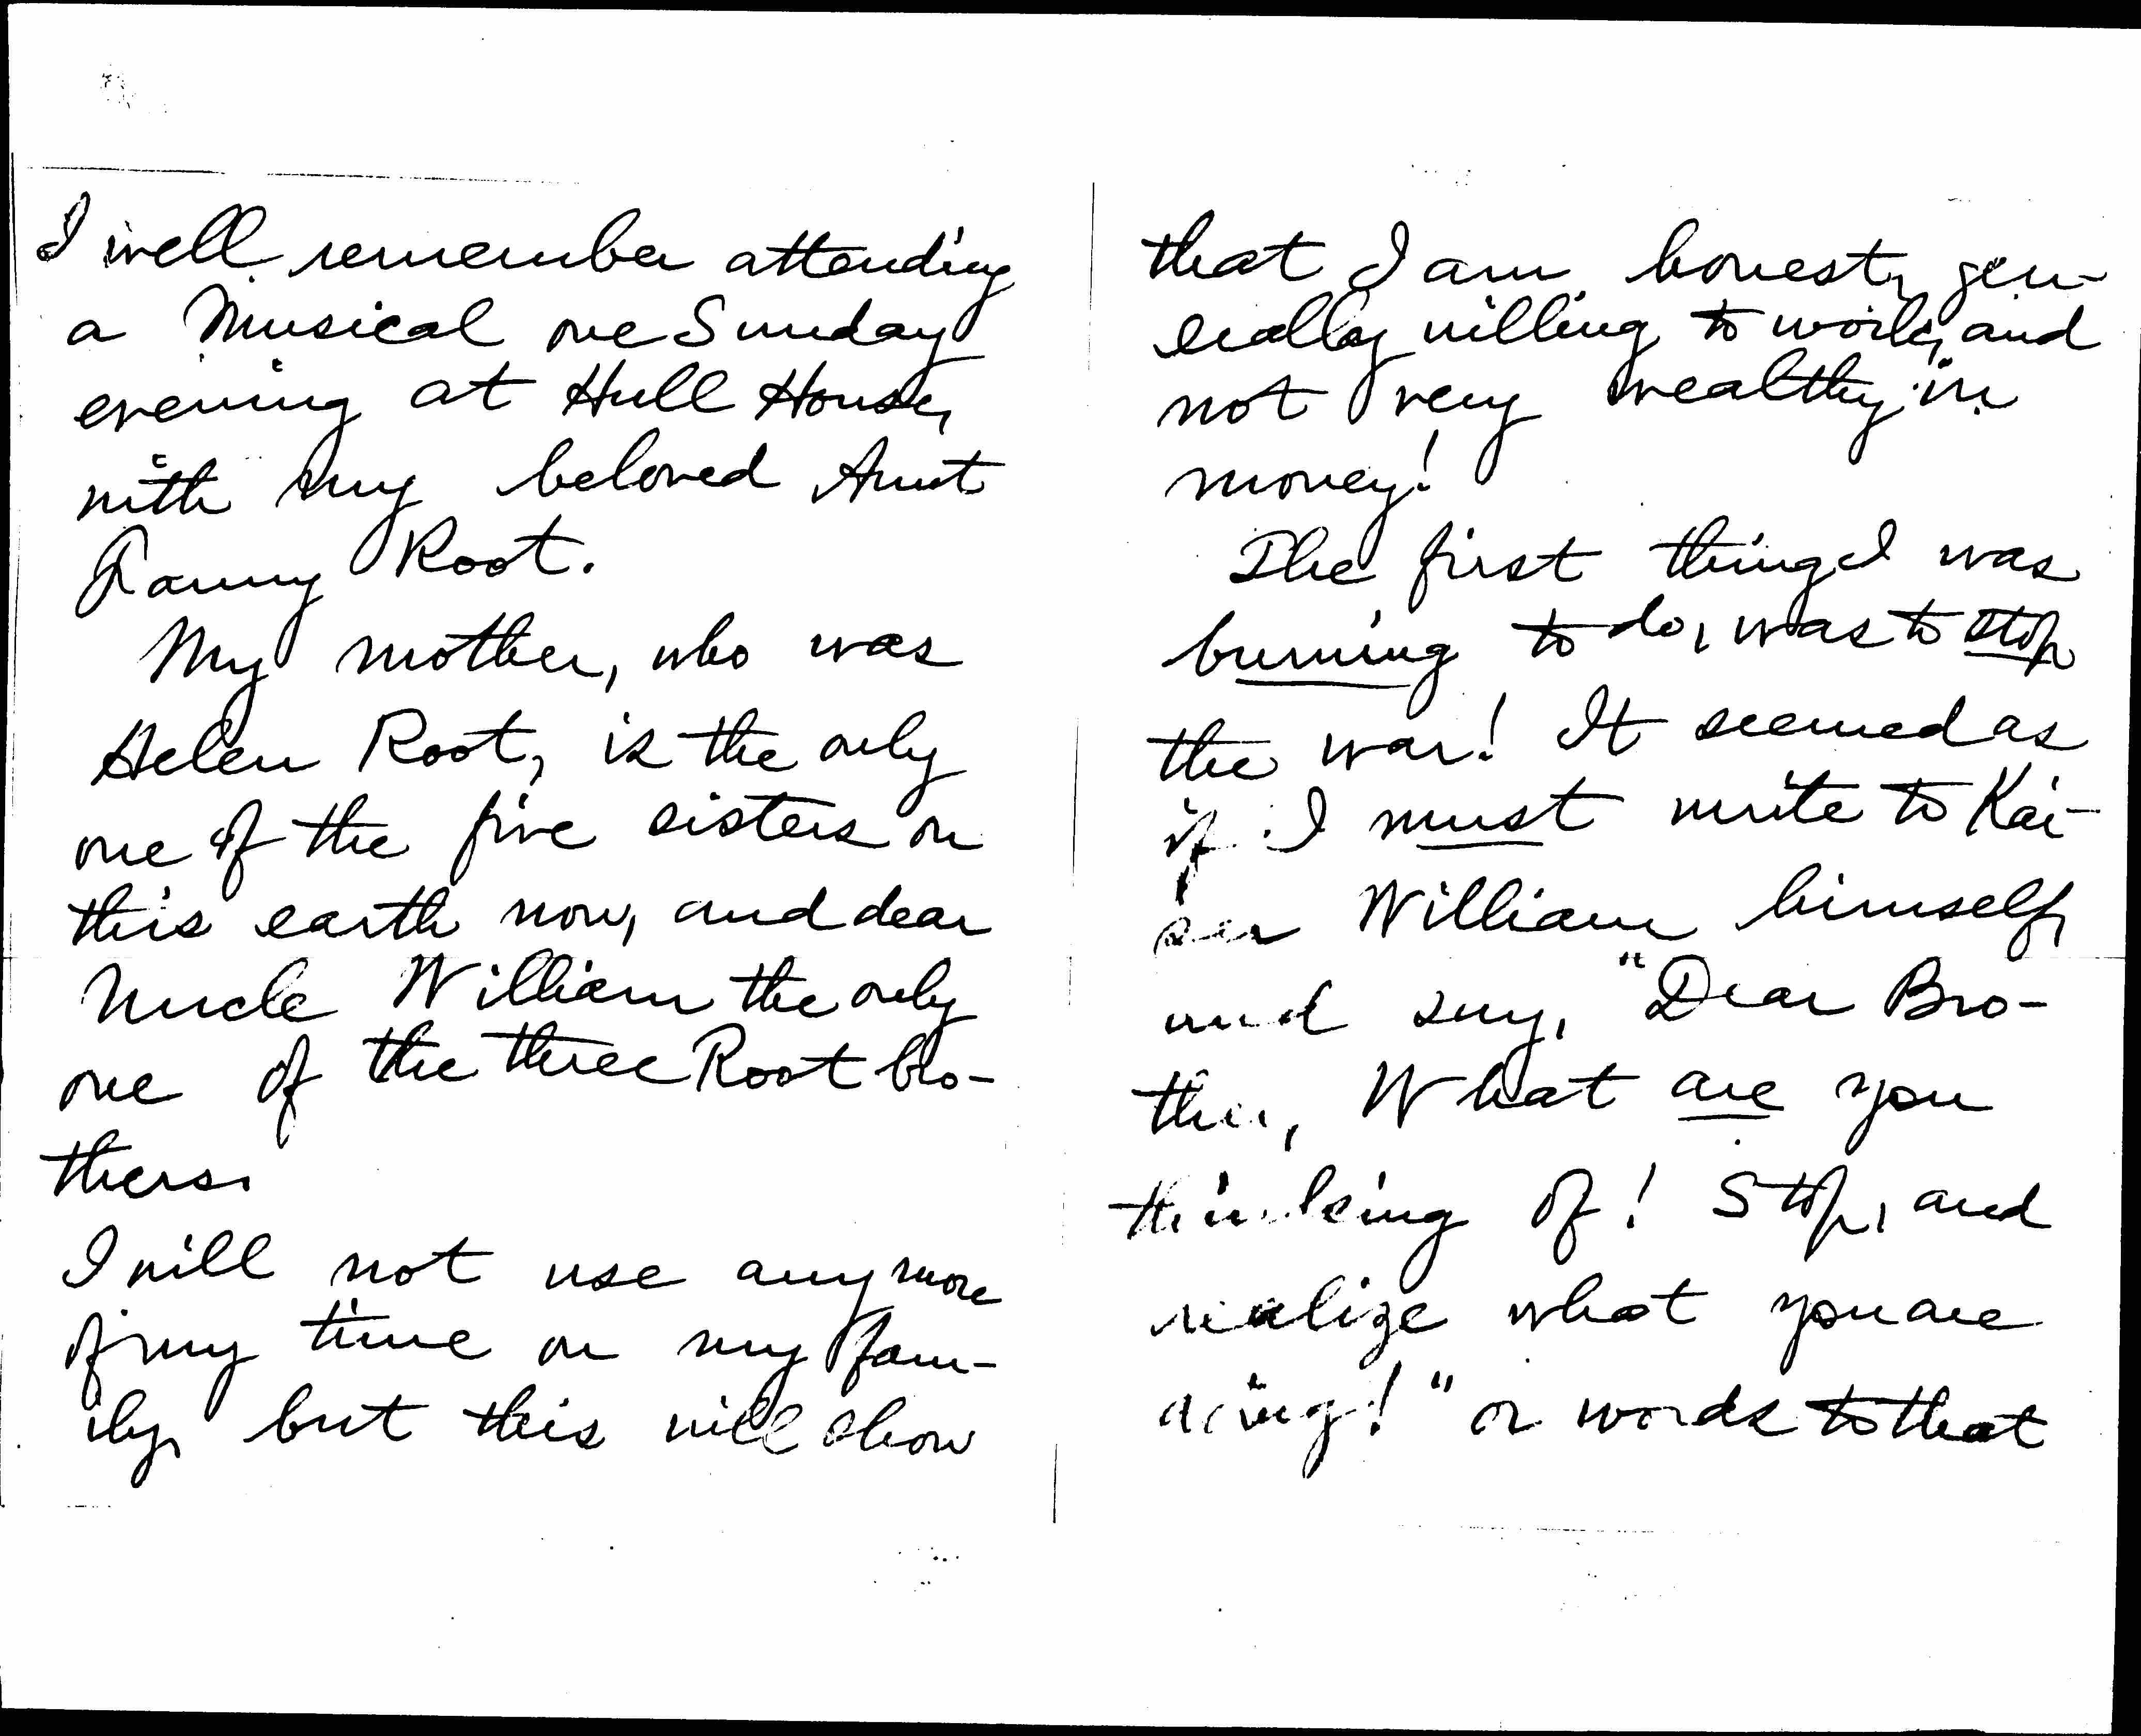 I well remember attending
a Musical one Sunday
evening at Hull House,
with my beloved Aunt
Fanny Root.
My mother, who was
Helen Root, is the only
one of the five sisters on
this earth now, and dear
Uncle William the only
one of the three Root bro-
thers.
I will not use any more
of my time on my fam-
ily, but this will show
that I am honest, gen-
erally willing to work, and
not very wealthy in
money!
The first thing I was
burning to do, was to stop
the war! It seemed as
if I must write to Kai-
ser William himself,
and say, "Dear Bro-
ther, What are you
thinking of! Stop, and
realize what you are
doing!" or words to that